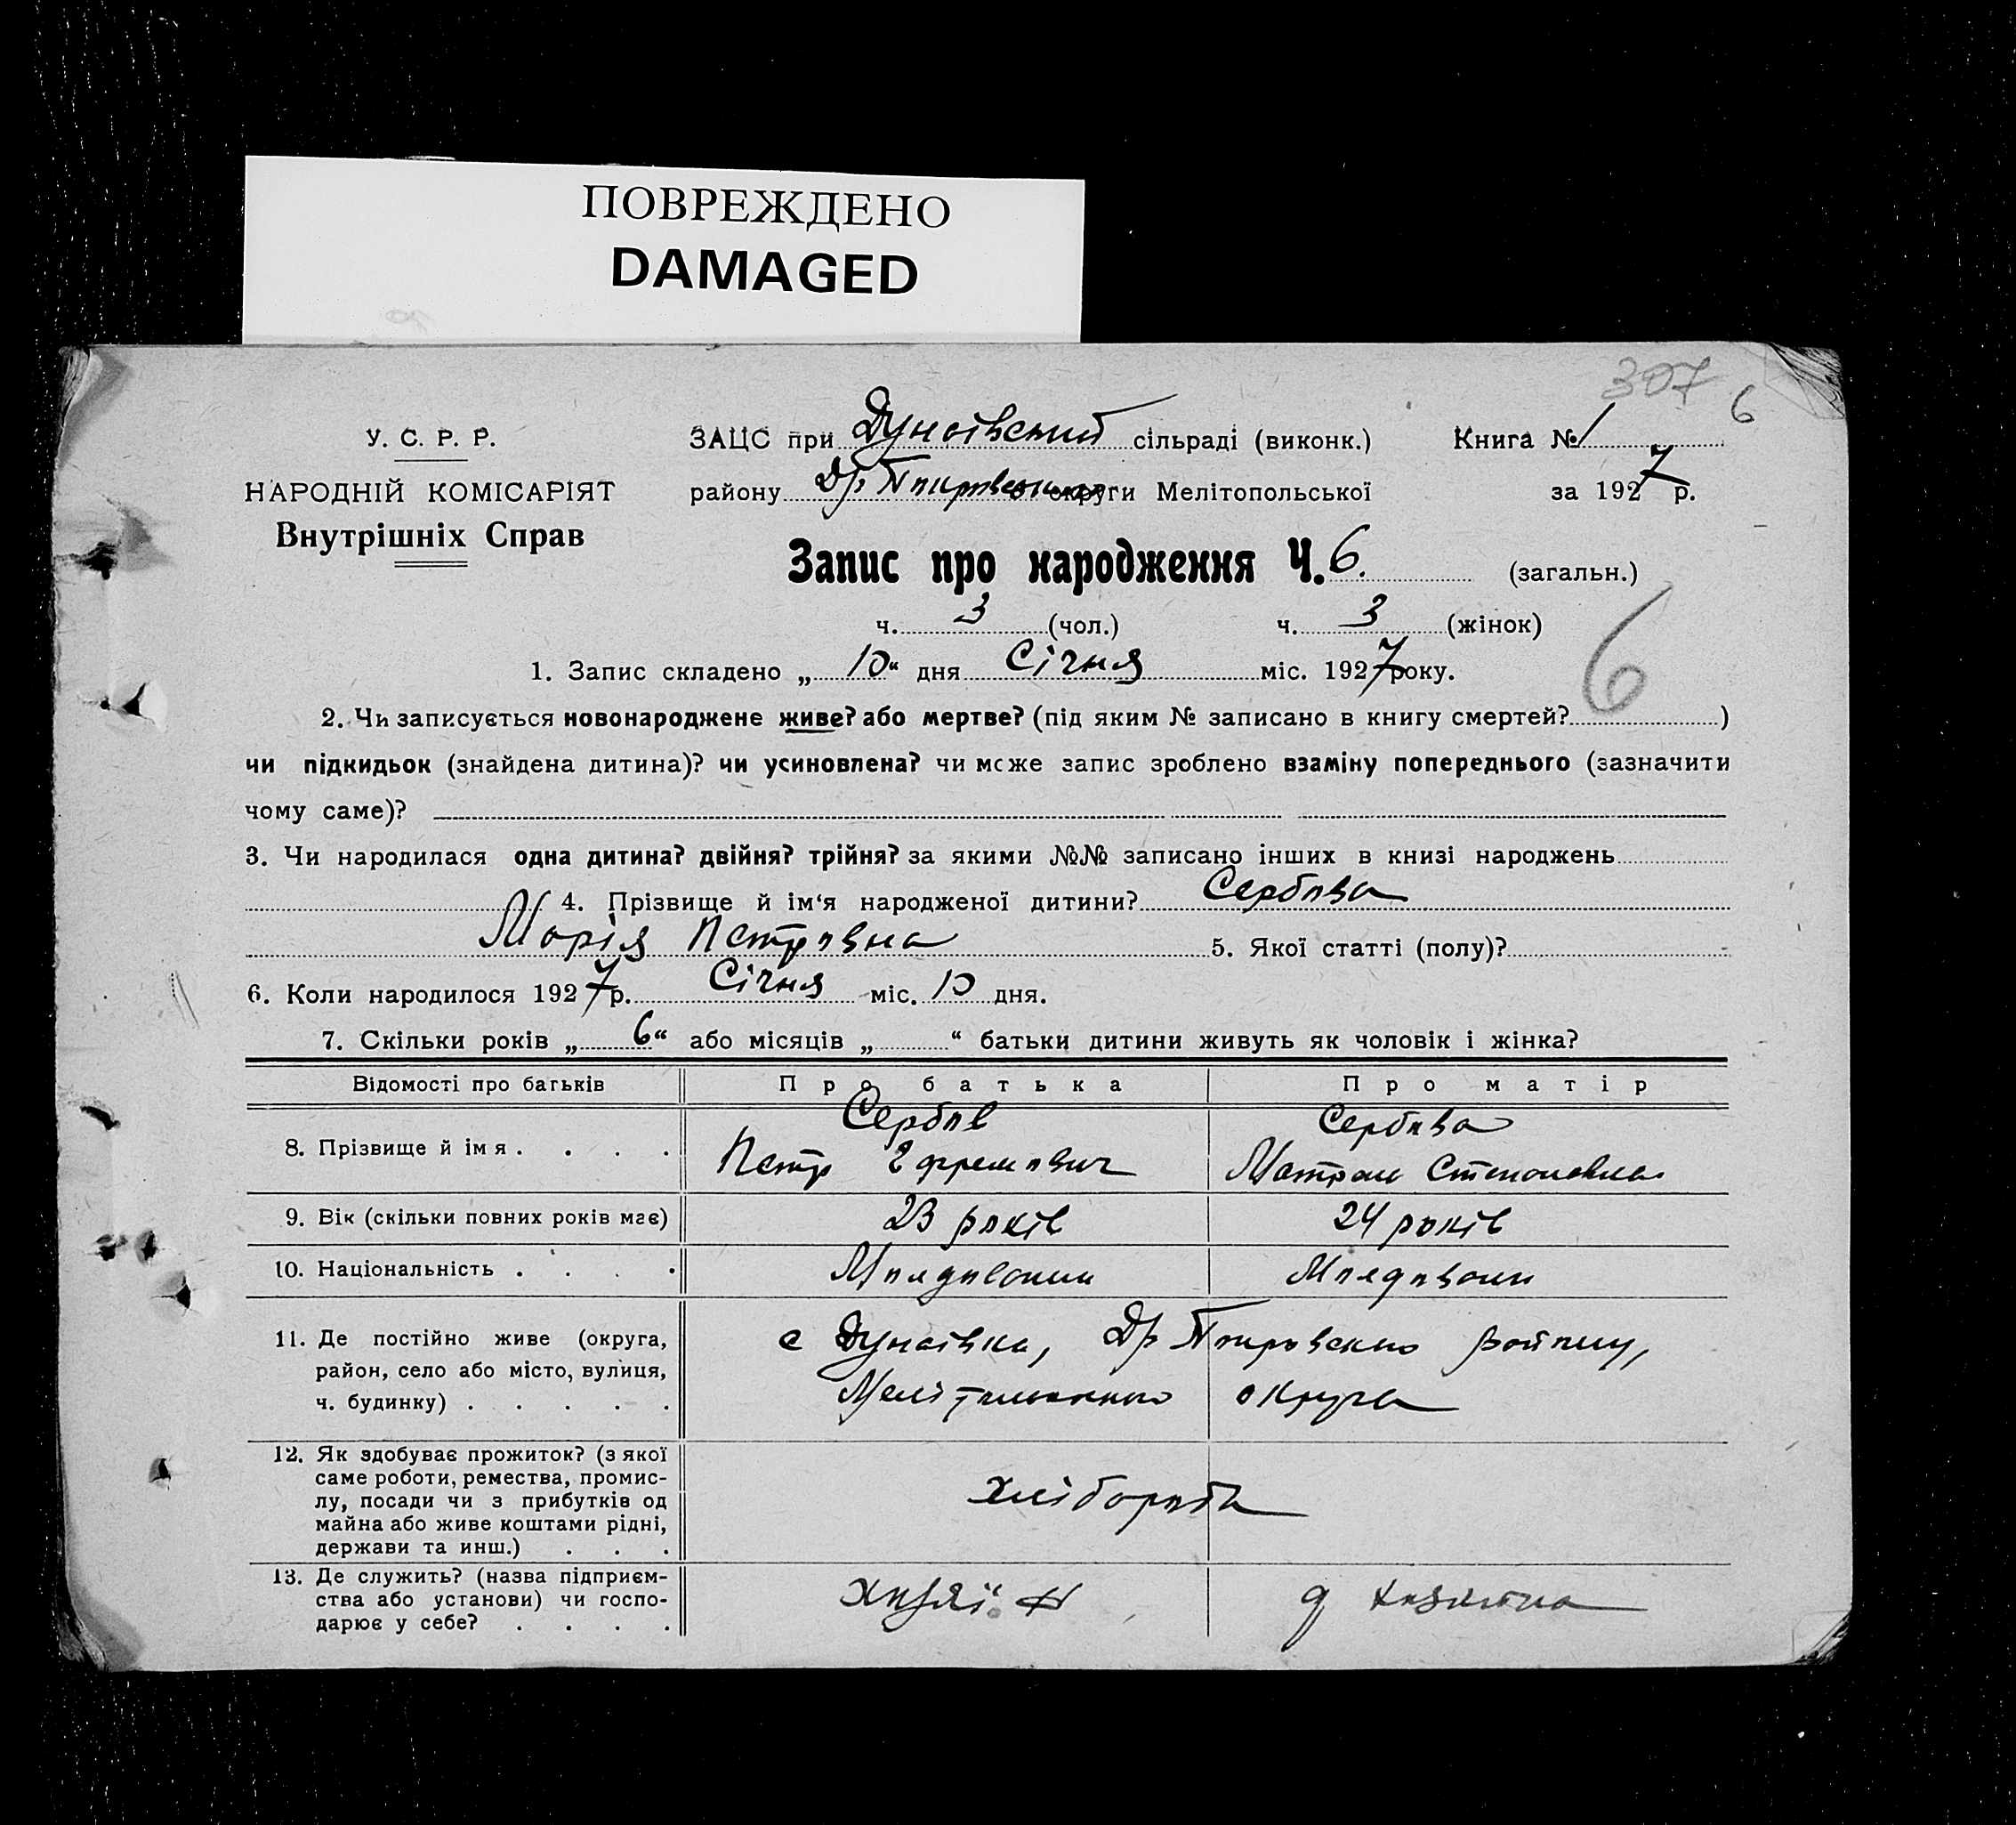 ПОВРЕЖДЕНО
DAMAGED
307 6
У. С. Р. Р.
НАРОДНІЙ КОМІСАРІЯТ
Внутрішніх Справ
ЗАЦС при Дунаївський сільраді (виконк.) Книга № 1
району округи Мелітопольської за 1927 р.
Запис про народження Ч. 6. (загальн.)
ч. 3 (чол.) ч. 3 (жінок)
6
1. Запис складено „10“ дня Січня міс. 1927 року.
2. Чи записується новонароджене живе? або мертве? (під яким № записано в книгу смертей? )
чи підкидьок (знайдена дитина)? чи усиновлена? чи може запис зроблено взаміну попереднього (зазначити
чому саме)?
3. Чи народилася одна дитина? двійня? трійня? за якими №№ записано інших в книзі народжень
4. Прізвище й ім‘я народженої дитини? Сербова
Марія Петровна 5. Якої статті (полу)?
6. Коли народилося 1927 р. Січня міс. 10 дня.
7. Скільки років „6“ або місяців „ “ батьки дитини живуть як чоловік і жінка?
Відомості про батьків Про батька Про матір
8. Прізвище й імя . . . . Сербов Сербова
Петр Ефремович Степановна
9. Вік (скільки повних років має) 23 років 24 років
10. Національність . . . .
11. Де постійно живе (округа,
район, село або місто, вулиця,
ч. будинку) . . . . .
с Дунаївка, Др Покровського району,
округа
12. Як здобуває прожиток? (з якої
саме роботи, ремества, промис-
лу, посади чи з прибутків од
майна або живе коштами рідні,
держави та инш.) . . .
хлібороби
13. Де служить? (назва підприєм-
ства або установи) чи госпо-
дарює у себе? . . . .